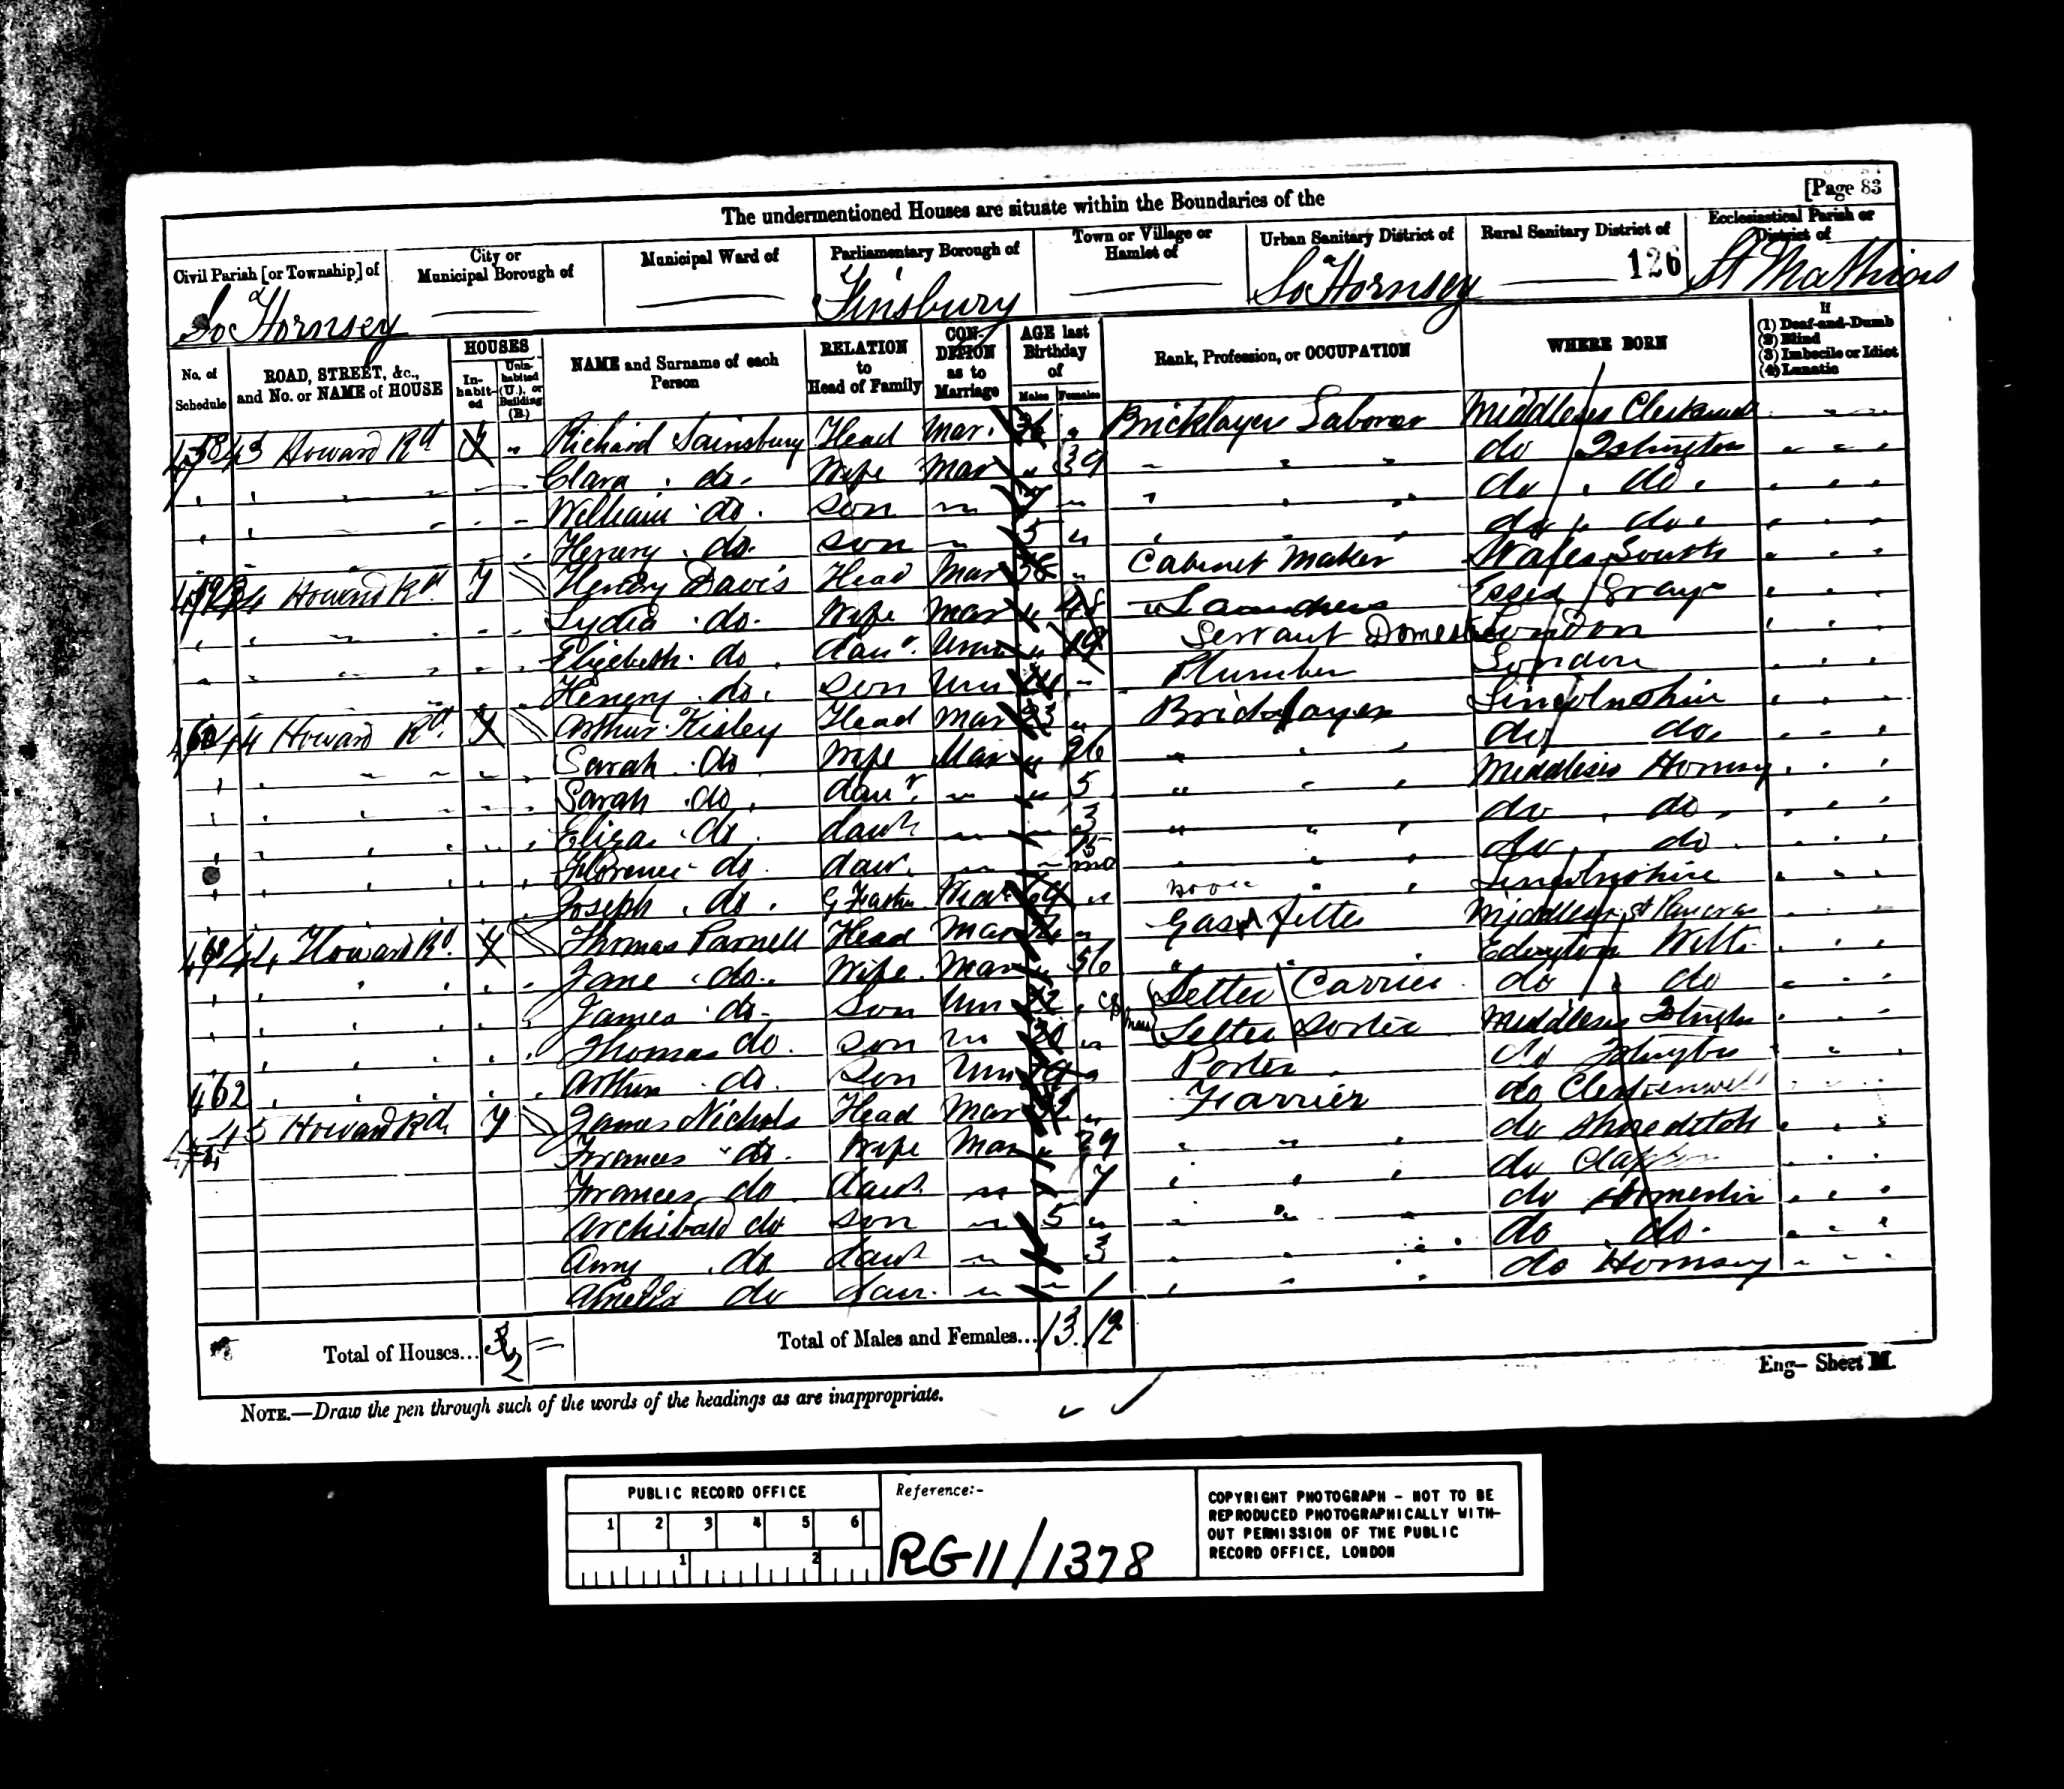 [Page 83
The undermentioned Houses are situate within the Boundaries of the
Civil Parish [or Township] of
City or Municipal Borough of
Municipal Ward of
Parliamentary Borough of
Town or Village or Hamlet of
Urban Sanitary District of
Rural Sanitary District of
Ecclesiastical Parish or District of
So Hornsey
Finsbury
So Hornsey
126
St Mathias
No. of Schedule
ROAD, STREET, &c., and No. or NAME of HOUSE
HOUSES
In-habit-ed
Unin-habited (U.), or Building (B.)
NAME and Surname of each Person
RELATION to Head of Family
CON-DITION as to Marriage
AGE last Birthday of
Males
Females
Rank, Profession, or OCCUPATION
WHERE BORN
If
(1) Deaf-and-Dumb
(2) Blind
(3) Imbecile or Idiot
(4) Lunatic
458 43 Howard Rd Richard Sainsbury Head Mar. 36 Bricklayers Laborer Middlesex
Clara do. Wife Mar 39 do Islington
William do. Son 7 do do.
Henery do. Son 5 do do
459 44 Howard Rd. 1 Henery Davis Head Mar 58 Cabinet Maker Wales South
Lydia do. Wife Mar 48 Laundress Essex Grays
Elizebeth do. daur. Unm 19 Servant Domestic London
Henery do. Son Un Plumber London
460 44 Howard Rd. Arthur Head Mar 33 Bricklayer Lincolnshire
Sarah do Wife Mar 26 do do
Sarah do. daur. 5 Middlesex Hornsey
Eliza do. daur 3 do do
Florence do. daur. 5 mo do do
Joseph do. G Father Widr 69 Lincolnshire
461 44 Howard Rd. Thomas Parnell Head Mar Gas fitter Middlesex St Pancras
Jane do. Wife. Mar 56 Wilts
James do. Son Un 22 Letter Carrier do do
Thomas do. Son 20 Letter Sorter Middlesex Islington
Arthur do. Son Unm 19 Porter do Islington
462 45 Howard Rd. 1 James Nichols Head Mar Farrier do Clerkenwell
Frances do. Wife Mar 29 do Shoreditch
Frances do daur 7 do Clapton
Archibald do Son 5 do Homerton
Amy do daur 3 do do.
Amelia do daur. 1 do Hornsey
Total of Houses... 2
Total of Males and Females... 13 12
Eng— Sheet M.
NOTE.—Draw the pen through such of the words of the headings as are inappropriate.
PUBLIC RECORD OFFICE
1 2 3 4 5 6
1 2
Reference:-
RG11/1378
COPYRIGHT PHOTOGRAPH - NOT TO BE
REPRODUCED PHOTOGRAPHICALLY WITH-
OUT PERMISSION OF THE PUBLIC
RECORD OFFICE, LONDON